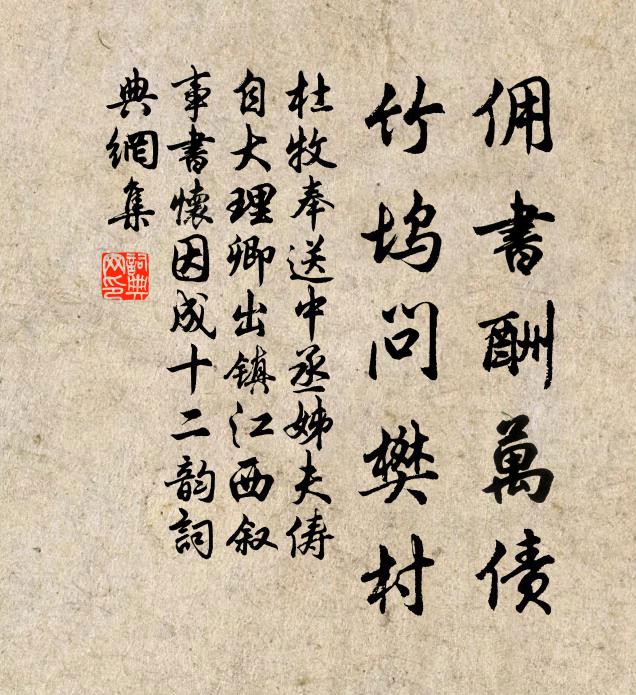 佣書酬萬债
竹坞问樊村
杜牧奉送中丞姊夫俦
自大理卿出镇江西叙
事書懷因成十二韵詞
典網集
詞典
网印